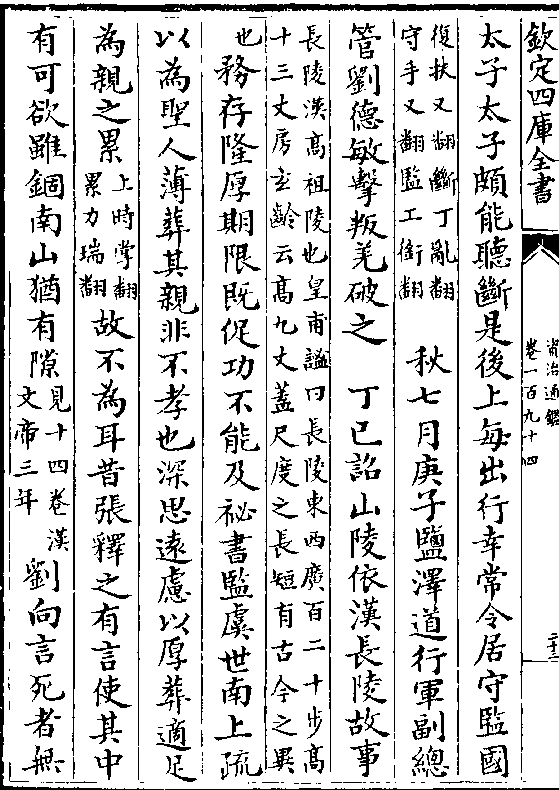 欽定四庫全書
資治通鑑
卷一百九十四
二十三
太子太子頗能聽斷是後上每出行幸常令居守監國
復扶又翻斷丁亂翻
守手又翻監工銜翻
秋七月庚子鹽澤道行軍副總
管劉德敏擊叛羌破之 丁巳詔山陵依漢長陵故事
長陵漢高祖陵也皇甫謐曰長陵東西廣百二十步髙
十三丈房玄齡云髙九丈蓋尺度之長短有古今之異
也
務存隆厚期限既促功不能及祕書監虞世南上疏
以為聖人薄葬其親非不孝也深思遠慮以厚葬適足
為親之累
上時掌翻
累力瑞翻
故不為耳昔張釋之有言使其中
有可欲雖錮南山猶有隙
見十四卷漢
文帝三年
劉向言死者無